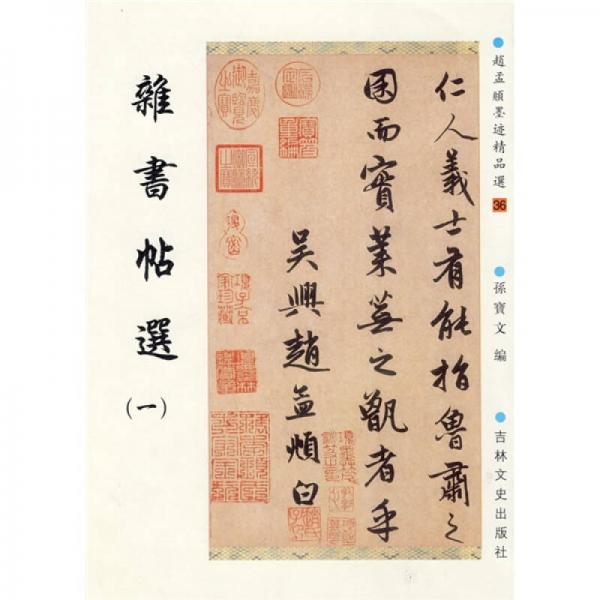 趙孟頫墨迹精品選 36
孫寶文 編
吉林文史出版社
仁人義士有能指魯肅之
囷而實萊蕪之甑者乎
吳興趙孟頫白
雜書帖選
(一)